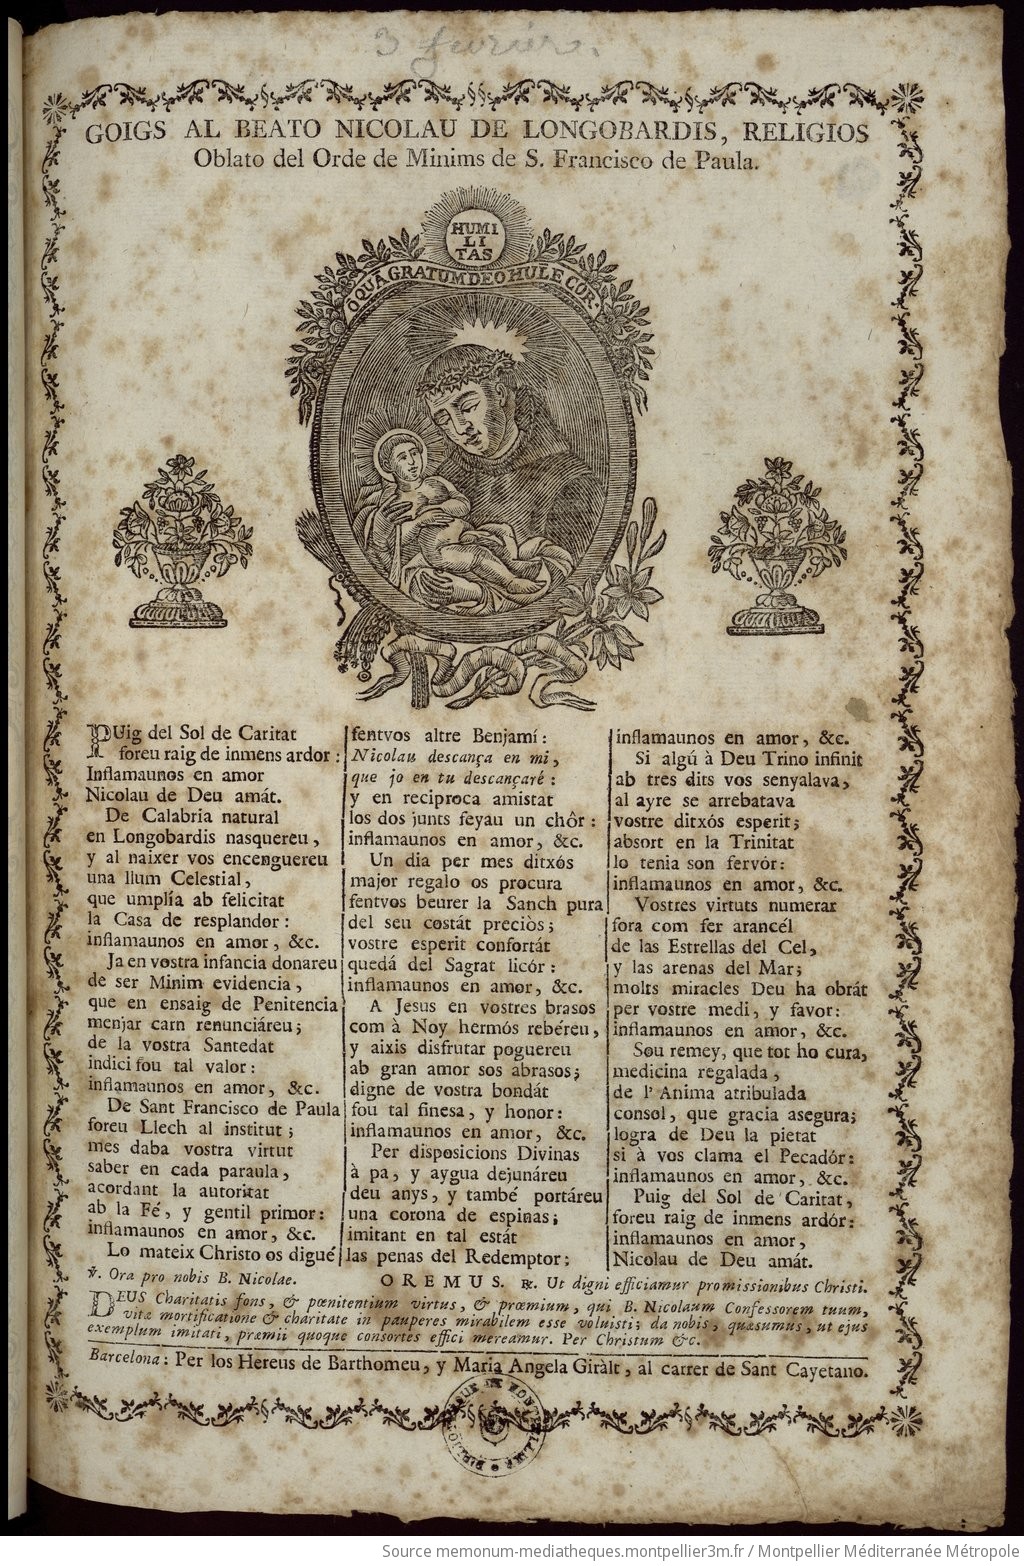 3 fevrier.
GOIGS AL BEATO NICOLAU DE LONGOBARDIS, RELIGIOS
Oblato del Orde de Minims de S. Francisco de Paula.
HUMI
LI
TAS
O QUA GRATUM DEO HULE COR.
PUig del Sol de Caritat
foreu raig de inmens ardor:
Inflamaunos en amor
Nicolau de Deu amát.
De Calabria natural
en Longobardis nasquereu,
y al naixer vos encenguereu
una llum Celestial,
que umplía ab felicitat
la Casa de resplandor:
inflamaunos en amor, &c.
Ja en vostra infancia donareu
de ser Minim evidencia,
que en ensaig de Penitencia
menjar carn renunciáreu;
de la vostra Santedat
indici fou tal valor:
inflamaunos en amor, &c.
De Sant Francisco de Paula
foreu Llech al institut;
mes daba vostra virtut
saber en cada paraula,
acordant la autoritat
ab la Fé, y gentil primor:
inflamaunos en amor, &c.
Lo mateix Christo os digué
sentvos altre Benjamí:
Nicolau descança en mi,
que jo en tu descançaré:
y en reciproca amistat
los dos junts feyau un chôr:
inflamaunos en amor, &c.
Un dia per mes ditxós
major regalo os procura
fentvos beurer la Sanch pura
del seu costát preciòs;
vostre esperit confortát
quedá del Sagrat licór:
inflamaunos en amor, &c.
A Jesus en vostres brasos
com à Noy hermós rebéreu,
y aixis disfrutar poguereu
ab gran amor sos abrasos;
digne de vostra bondát
fou tal finesa, y honor:
inflamaunos en amor, &c.
Per disposicions Divinas
à pa, y aygua dejunáreu
deu anys, y també portáreu
una corona de espinas;
imitant en tal estát
las penas del Redemptor:
inflamaunos en amor, &c.
Si algú à Deu Trino infinit
ab tres dits vos senyalava,
al ayre se arrebatava
vostre ditxós esperit;
absort en la Trinitat
lo tenia son fervór:
inflamaunos en amor, &c.
Vostres virtuts numerar
fora com fer arancél
de las Estrellas del Cel,
y las arenas del Mar;
molts miracles Deu ha obrát
per vostre medi, y favor:
inflamaunos en amor, &c.
Sou remey, que tot ho cura,
medicina regalada,
de l' Anima atribulada
consol, que gracia asegura;
logra de Deu la pietat
si à vos clama el Pecadór:
inflamaunos en amor, &c.
Puig del Sol de Caritat,
foreu raig de inmens ardór:
inflamaunos en amor,
Nicolau de Deu amát.
℣. Ora pro nobis B. Nicolae. OREMUS. ℞. Ut digni efficiamur promissionibus Christi.
DEUS Charitatis fons, & pœnitentium virtus, & præmium, qui B. Nicolaum Confessorem tuum,
vitæ mortificatione & charitate in pauperes mirabilem esse voluisti; da nobis, quæsumus, ut ejus
exemplum imitati, præmii quoque consortes effici mereamur. Per Christum &c.
Barcelona: Per los Hereus de Barthomeu, y Maria Angela Giràlt, al carrer de Sant Cayetano.
BIBLIOTHEQUE DE MONTPELLIER
Source memonum-mediatheques.montpellier3m.fr / Montpellier Méditerranée Métropole